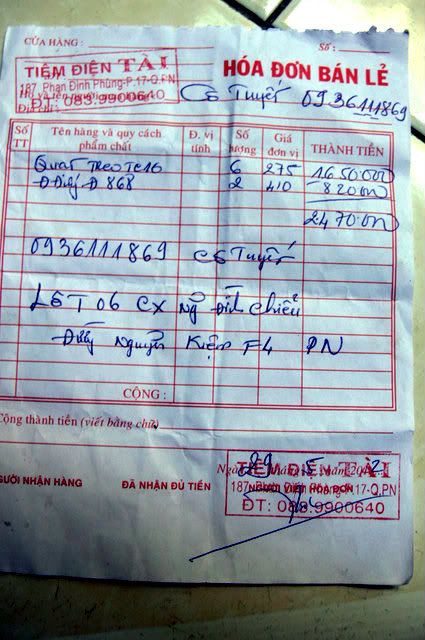 CỬA HÀNG : Số :
TIỆM ĐIỆN TÀI
187, Phan Đình Phùng-P.17-Q.PN
ĐT: 083.9900640
HÓA ĐƠN BÁN LẺ
Cô Tuyết 0936111869
Số TT Tên hàng và quy cách phẩm chất Đ. vị tính Số lượng Giá đơn vị THÀNH TIỀN
Quạt Treo TC16 6 275 1650.000
868 2 410 820
2470
0936111869 Cô Tuyết
Lô T06 CX Ng Đình Chiểu
Nguyễn Kiệm F4 PN
CỘNG :
Cộng thành tiền (viết bằng chữ)
29 5
TIỆM ĐIỆN TÀI
187, Phan Đình Phùng-P.17-Q.PN
ĐT: 083.9900640
NGƯỜI NHẬN HÀNG ĐÃ NHẬN ĐỦ TIỀN